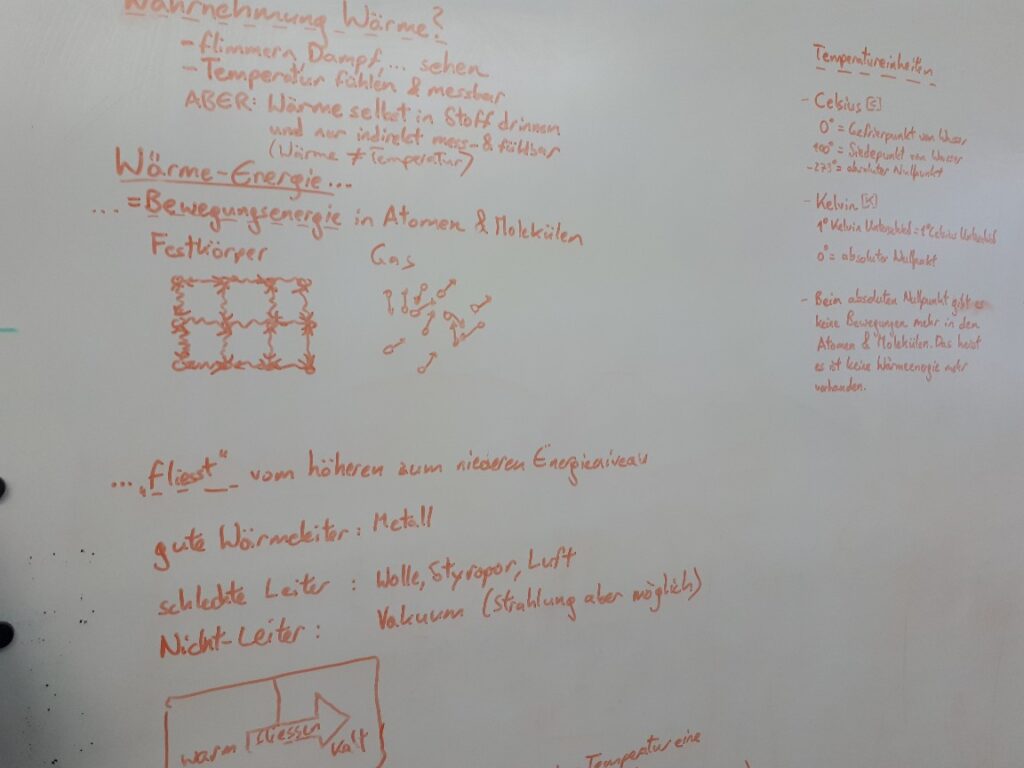 Wahrnehmung Wärme?
- flimmern, Dampf,... sehen
- Temperatur fühlen & messbar
ABER: Wärme selbst in Stoff drinnen
und nur indirekt mess- & fühlbar
(Wärme ≠ Temperatur)
Wärme-Energie...
... = Bewegungsenergie in Atomen & Molekülen
Festkörper Gas
... „fliesst" vom höheren zum niederen Energieniveau
gute Wärmeleiter: Metall
schlechte Leiter : Wolle, Styropor, Luft
Nicht-Leiter : Vakuum (Strahlung aber möglich)
warm fliessen kalt
Temperatur eine
Temperatureinheiten
- Celsius [C]
0° = Gefrierpunkt von Wasser
100° = Siedepunkt von Wasser
-273° = absoluter Nullpunkt
- Kelvin [K]
1° Kelvin Unterschied = 1° Celsius Unterschied
0° = absoluter Nullpunkt
- Beim absoluten Nullpunkt gibt es
keine Bewegungen mehr in den
Atomen & Molekülen. Das heist
es ist keine Wärmeenergie mehr
vorhanden.